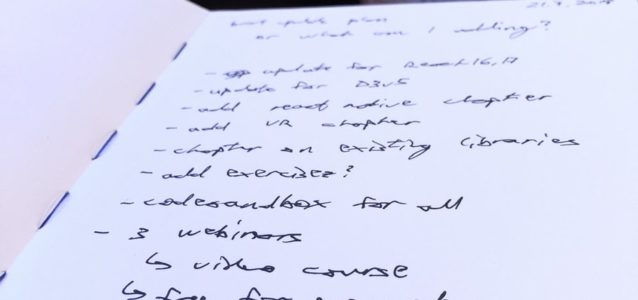 update plan
or what am I adding?
- update for React 16, 17
- update for D3v5
- add react native chapter
- add VR chapter
- chapter on existing libraries
- add exercises?
- codesandbox for all
- 3 webinars
↳ video course
↳ free for